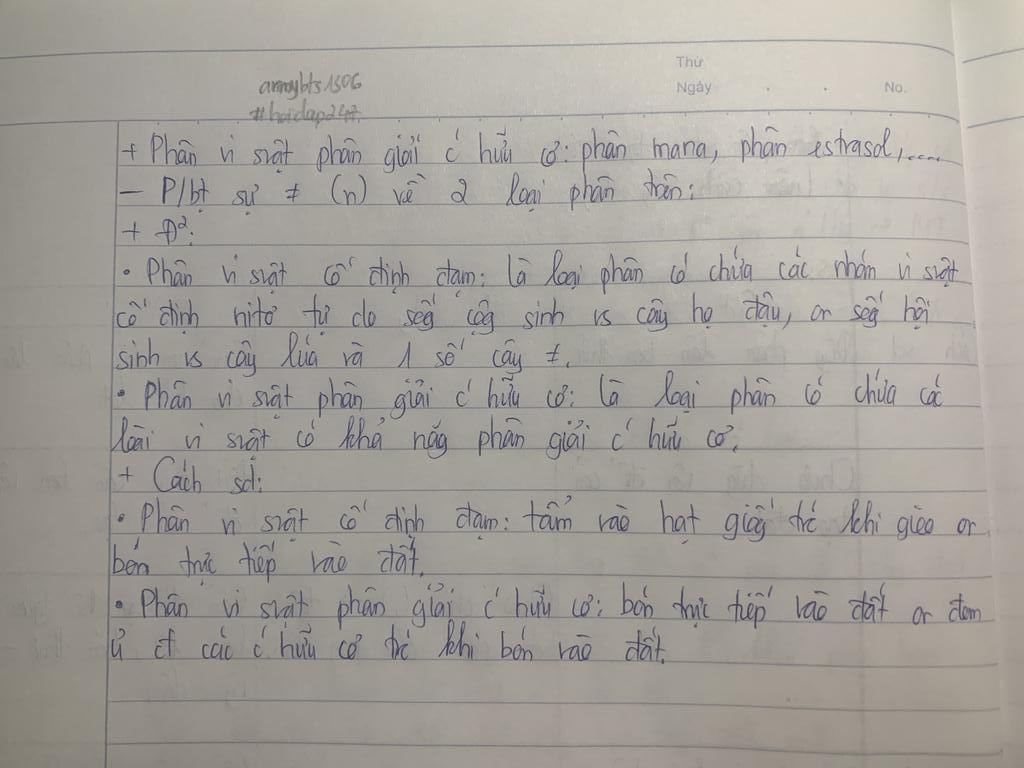 Thứ
armybts1306
Ngày . . No.
#hoidap247
+ Phân vi svật phân giải ć hữu cơ: phân mana, phân estrasol,....
– P/bt sự ≠ (n) về 2 loại phân trên:
+ Đ²:
• Phân vi svật cố định đạm: là loại phân có chứa các nhóm vi svật
cố định nitơ tự do sốg cộg sinh vs cây họ đậu, or sốg hội
sinh vs cây lúa và 1 số cây ≠.
• Phân vi svật phân giải ć hữu cơ: là loại phân có chứa các
loài vi svật có khả năg phân giải ć hữu cơ.
+ Cách sd:
• Phân vi svật cố định đạm: tẩm vào hạt giốg trć khi gieo or
bón trực tiếp vào đất.
• Phân vi svật phân giải ć hữu cơ: bón trực tiếp vào đất or đem
ủ các ć hữu cơ trć khi bón vào đất.